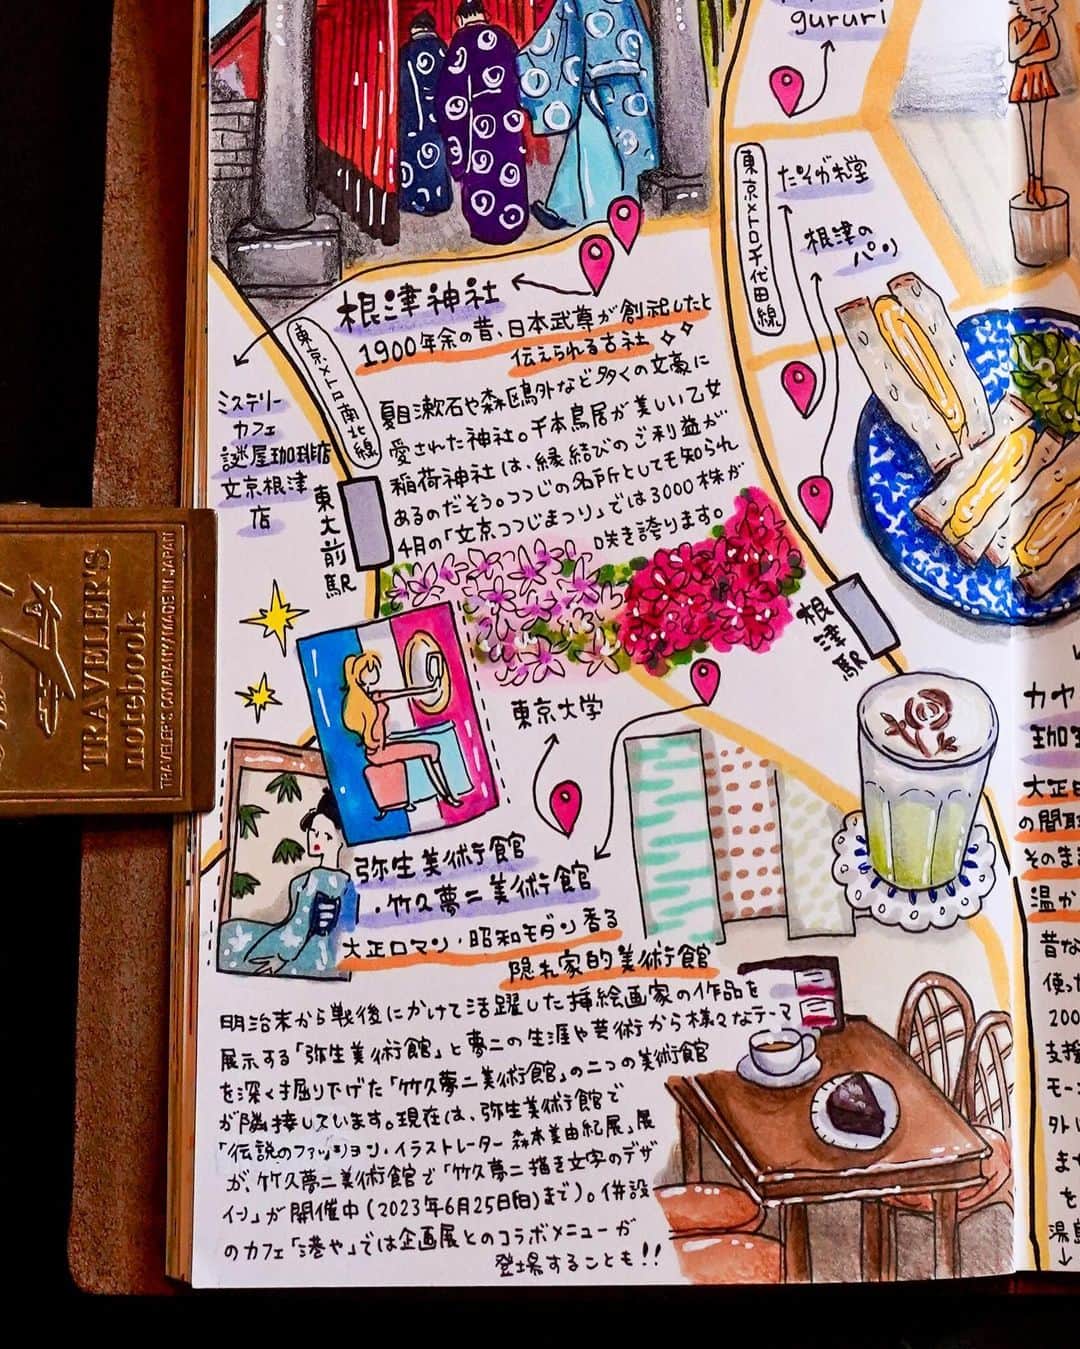 gururi
東京メトロ千代田線
たそがれ堂
根津の
パン
根津神社
1900年余の昔、日本武尊が創祀したと
伝えられる古社
東京メトロ南北線
夏目漱石や森区鳥外など多くの文豪に
愛された神社。千本鳥居が美しい乙女
稲荷神社は、縁結びのご利益が
あるのだそう。つつじの名所としても知られ
4月の「文京つつじまつり」では3000株が
咲き誇ります。
ミステリー
カフェ
謎屋珈琲店
文京根津
店
東大前駅
根津駅
東京大学
弥生美術館
・竹久夢二美術館
大正ロマン・昭和モダン香る
隠れ家的美術館
明治末から戦後にかけて活躍した挿絵画家の作品を
展示する「弥生美術館」と夢二の生涯や芸術から様々なテーマ
を深く掘り下げた「竹久夢二美術館」の二つの美術館
が隣接しています。現在は、弥生美術館で
「伝説のファッション・イラストレーター 森本美由紀展」展
が、竹久夢二美術館で「竹久夢二描き文字のデザ
イン」が開催中(2023年6月25日(日)まで)。併設
のカフェ「港や」では企画展とのコラボメニューが
登場することも!!
カヤ
珈
大正
の間取
そのま
温か
昔な
使っ
200
支援
モー
外し
ませ
を
湯島
TRAVELER'S
notebook
TRAVELER'S COMPANY MADE IN JAPAN